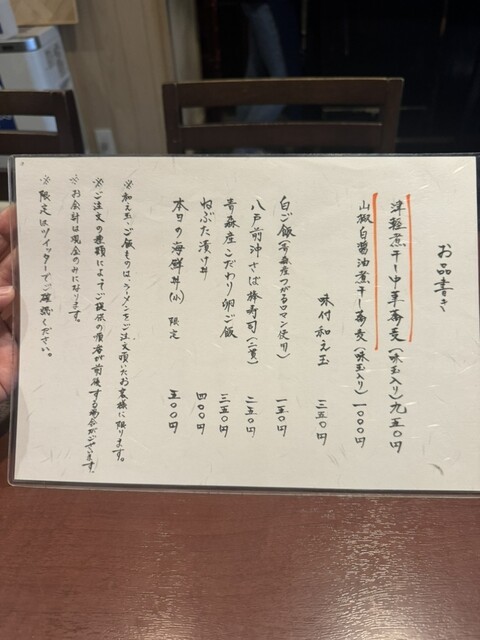 お品書き
津軽煮干し中華蕎麦(味玉入り)九五〇円
山椒白醤油煮干し蕎麦(味玉入り)一〇〇〇円
味付和え玉 三五〇円
白ご飯(青森産つがるロマン使用)一五〇円
八戸前沖さば棒寿司(二貫)二五〇円
青森産こだわり卵ご飯 三五〇円
ねぶた漬け丼 四〇〇円
本日の海鮮丼(小)限定 五〇〇円
※和え玉、ご飯ものは、ラーメンをご注文頂いたお客様に限ります。
※ご注文の種類によってご提供の順番が前後する場合がございます。
※お会計は現金のみになります。
※限定はツイッターでご確認ください。